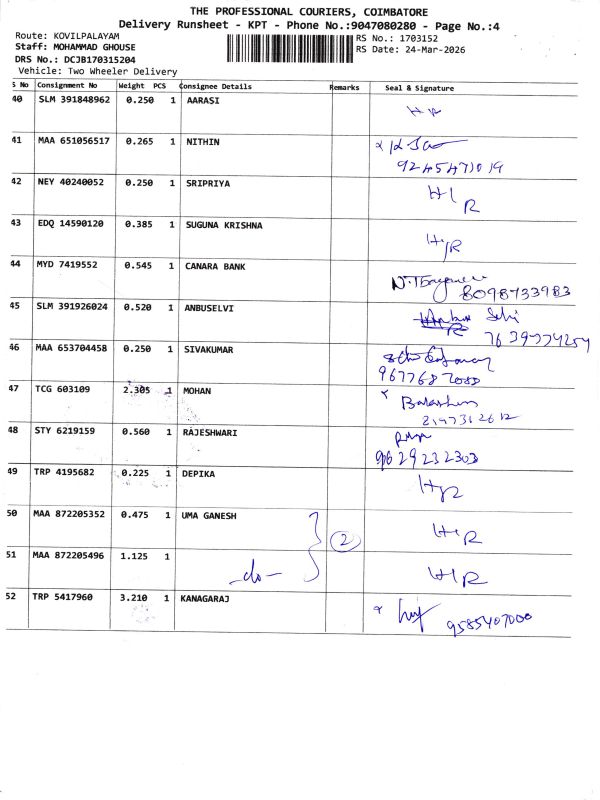 THE PROFESSIONAL COURIERS, COIMBATORE
Delivery Runsheet - KPT - Phone No.:9047080280 - Page No.:4
Route: KOVILPALAYAM
RS No.: 1703152
Staff: MOHAMMAD GHOUSE
RS Date: 24-Mar-2026
DRS No.: DCJB170315204
Vehicle: Two Wheeler Delivery
S No Consignment No Weight PCS Consignee Details Remarks Seal & Signature
40 SLM 391848962 0.250 1 AARASI
41 MAA 651056517 0.265 1 NITHIN
9245471019
42 NEY 40240052 0.250 1 SRIPRIYA H/R
43 EDQ 14590120 0.385 1 SUGUNA KRISHNA H/R
44 MYD 7419552 0.545 1 CANARA BANK
8098733983
45 SLM 391926024 0.520 1 ANBUSELVI
46 MAA 653704458 0.250 1 SIVAKUMAR
47 TCG 603109 2.305 1 MOHAN
48 STY 6219159 0.560 1 RAJESHWARI
9629232303
49 TRP 4195682 0.225 1 DEPIKA
50 MAA 872205352 0.475 1 UMA GANESH H/R
2
51 MAA 872205496 1.125 1 -do- H/R
52 TRP 5417960 3.210 1 KANAGARAJ
9585407000